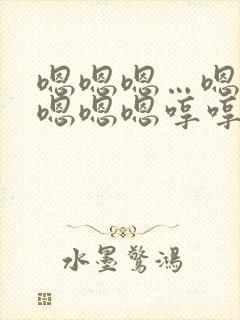 嗯嗯嗯…嗯
嗯嗯嗯哼哼
水墨驚鴻